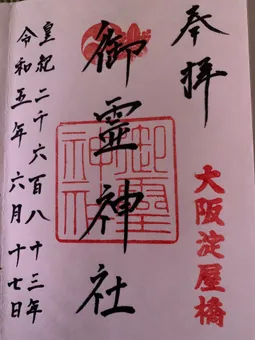 奉拝
大阪淀屋橋
御霊神社
御霊神社
皇紀二千六百八十三年
令和五年六月十七日